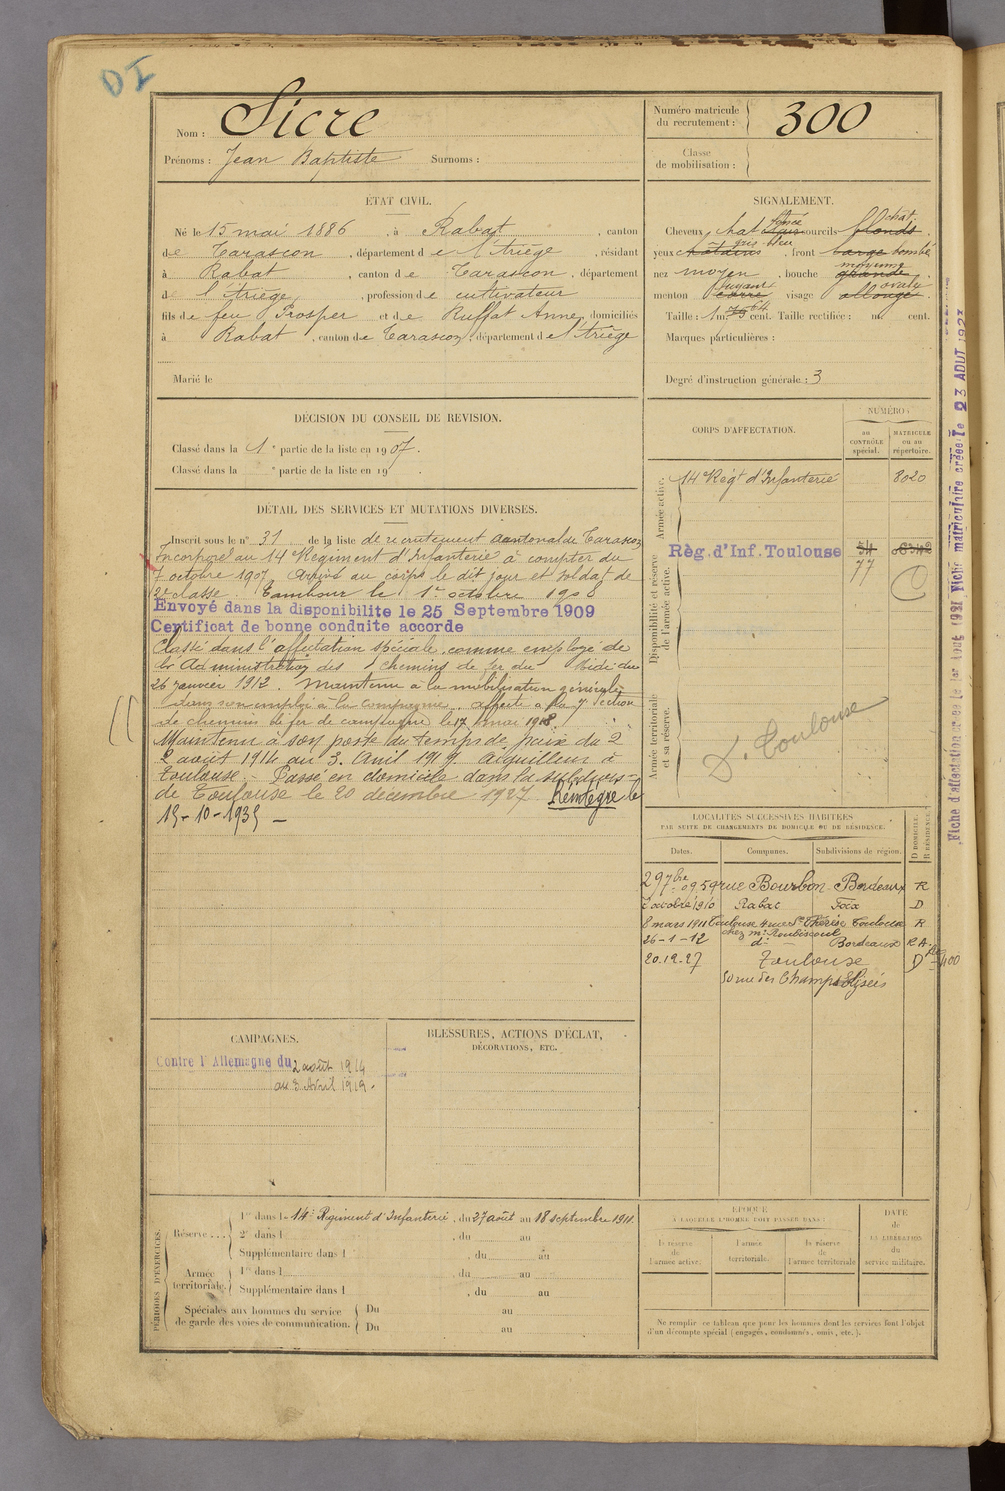 DI
Nom : Sicre
Prénoms : Jean Baptiste Surnoms :
Numéro matricule du recrutement : 300
Classe de mobilisation :
ÉTAT CIVIL.
Né le 15 mai 1886 , à Rabat , canton
de Tarascon , département de l'Ariège , résidant
à Rabat , canton de Tarascon , département
de l'Ariège , profession de cultivateur
fils de feu Prosper et de Ruffat Anne, domiciliés
à Rabat , canton de Tarascon , département de l'Ariège
Marié le
SIGNALEMENT.
Cheveux chat foncé sourcils blonds chat.
yeux châtains gris-bleu , front large bombé,
nez moyen , bouche grande moyenne .
menton carré fuyant visage allongé ovale
Taille : 1 m. 75 cent. Taille rectifiée : m. cent.
Marques particulières :
Degré d'instruction générale : 3
DÉCISION DU CONSEIL DE REVISION.
Classé dans la 1e partie de la liste en 1907.
Classé dans la e partie de la liste en 19 .
CORPS D'AFFECTATION.
NUMÉROS
au CONTRÔLE spécial.
MATRICULE ou au répertoire.
Armée active.
14e Régt d'Infanterie 8020
Disponibilité et réserve de l'armée active.
Rég. d'Inf. Toulouse 54
77
C
Armée territoriale et sa réserve.
D. Toulouse
DÉTAIL DES SERVICES ET MUTATIONS DIVERSES.
Inscrit sous le n° 31 de la liste de recrutement cantonal de Tarascon
Incorporé au 14e Régiment d'Infanterie à compter du
7 octobre 1907 Arrivé au corps le dit jour et soldat de
2e classe. Tambour le 1er octobre 1908
Envoyé dans la disponibilite le 25 Septembre 1909
Certificat de bonne conduite accorde
Classé dans l'affectation spéciale comme employé de
la Administration des chemins de fer du Midi du
26 janvier 1912. Maintenu à la mobilisation générale
dans son emploi à la compagnie. Affecté à la 7e Section
de chemins de fer de campagne le 17 mai 1918.
Maintenu à son poste du temps de paix du 2
2 août 1914 au 3 Avril 1919. Aiguilleur à
Toulouse. Passé en domicile dans la subdivis-
de Toulouse le 20 décembre 1927. Réintégré le
15-10-1935 -
LOCALITÉS SUCCESSIVES HABITÉES
PAR SUITE DE CHANGEMENTS DE DOMICILE OU DE RÉSIDENCE.
Dates. Communes. Subdivisions de région. D DOMICILE. R RÉSIDENCE.
29 7bre 09 59 rue Bourbon - Bordeaux R
7 octobre 1910 Rabat Foix D
8 mars 1911 Toulouse 4 rue Ste Thérèse Toulouse R
chez Mr
26-1-12 d° - Bordeaux R A.
20.12.27 Toulouse D
50 rue des Champs Elysées
CAMPAGNES.
Contre l'Allemagne du 2 août 1914
au 3 Avril 1919.
BLESSURES, ACTIONS D'ÉCLAT,
DÉCORATIONS, ETC.
PÉRIODES D'EXERCICES.
Réserve...
1re dans l 14e Régiment d'Infanterie , du 27 août au 18 septembre 1911.
2e dans l , du au
Supplémentaire dans l , du au
Armée territoriale.
1re dans l , du au
Supplémentaire dans l , du au
Spéciales aux hommes du service de garde des voies de communication.
Du au
Du au
ÉPOQUE
À LAQUELLE L'HOMME DOIT PASSER DANS :
la réserve de l'armée active.
l'armée territoriale.
la réserve de l'armée territoriale
DATE de LA LIBÉRATION du service militaire.
Ne remplir ce tableau que pour les hommes dont les services font l'objet
d'un décompte spécial (engagés, condamnés, omis, etc.).
Fiche matriculaire créée le 23 AOUT 1927